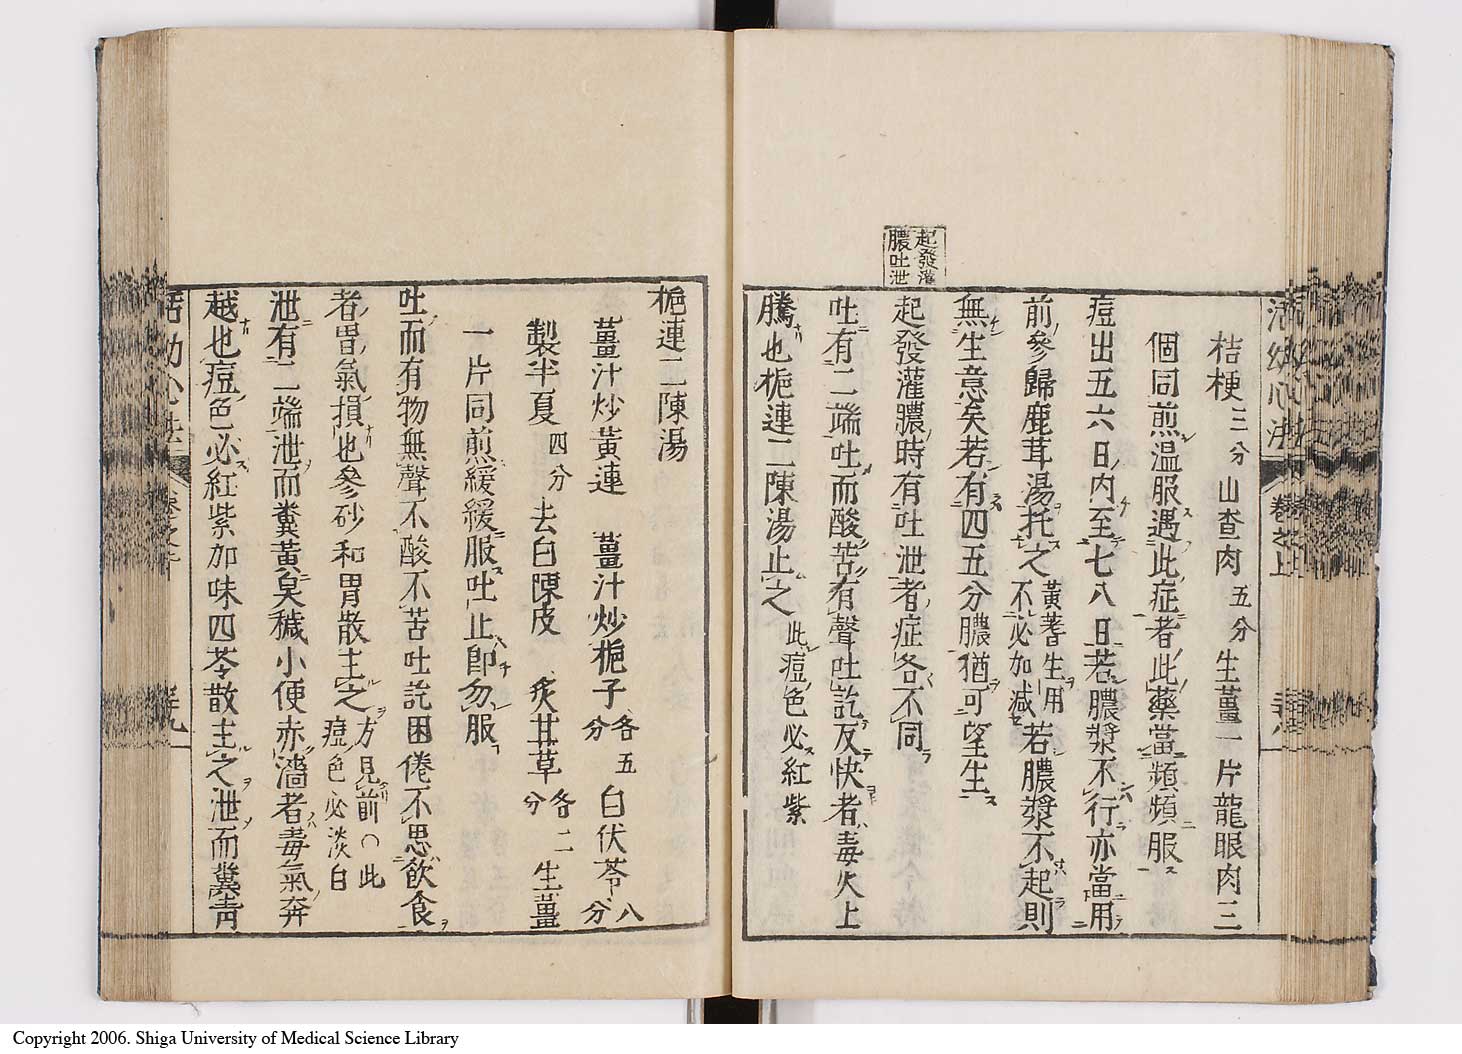 活幼心法 卷之上
桔梗三分 山查肉五分 生薑一片龍眼肉三
個同煎温服遇此症者此藥當頻頻服
痘出五六日内至七八日若膿漿不行亦當用
前參歸鹿茸湯托之黃蓍生用不必加減若膿漿不起則
無生意矣若有四五分膿猶可望生
起發灌膿吐泄
起發灌膿時有吐泄者症各不同
吐有二端吐而酸苦有聲吐訖反快者毒火上
騰也梔連二陳湯止之此痘色必紅紫
梔連二陳湯
薑汁炒黃連 薑汁炒梔子各五分 白伏苓八分
製半夏四分 去白陳皮 炙甘草各二分 生薑
一片同煎緩緩服吐止卽勿服
吐而有物無聲不酸不苦吐訖困倦不思飲食
者胃氣損也參砂和胃散主之方見前○此痘色必淡白
泄有二端泄而糞黃臭穢小便赤濇者毒氣奔
越也痘色必紅紫加味四苓散主之泄而糞靑
活幼心法
Copyright 2006. Shiga University of Medical Science Library